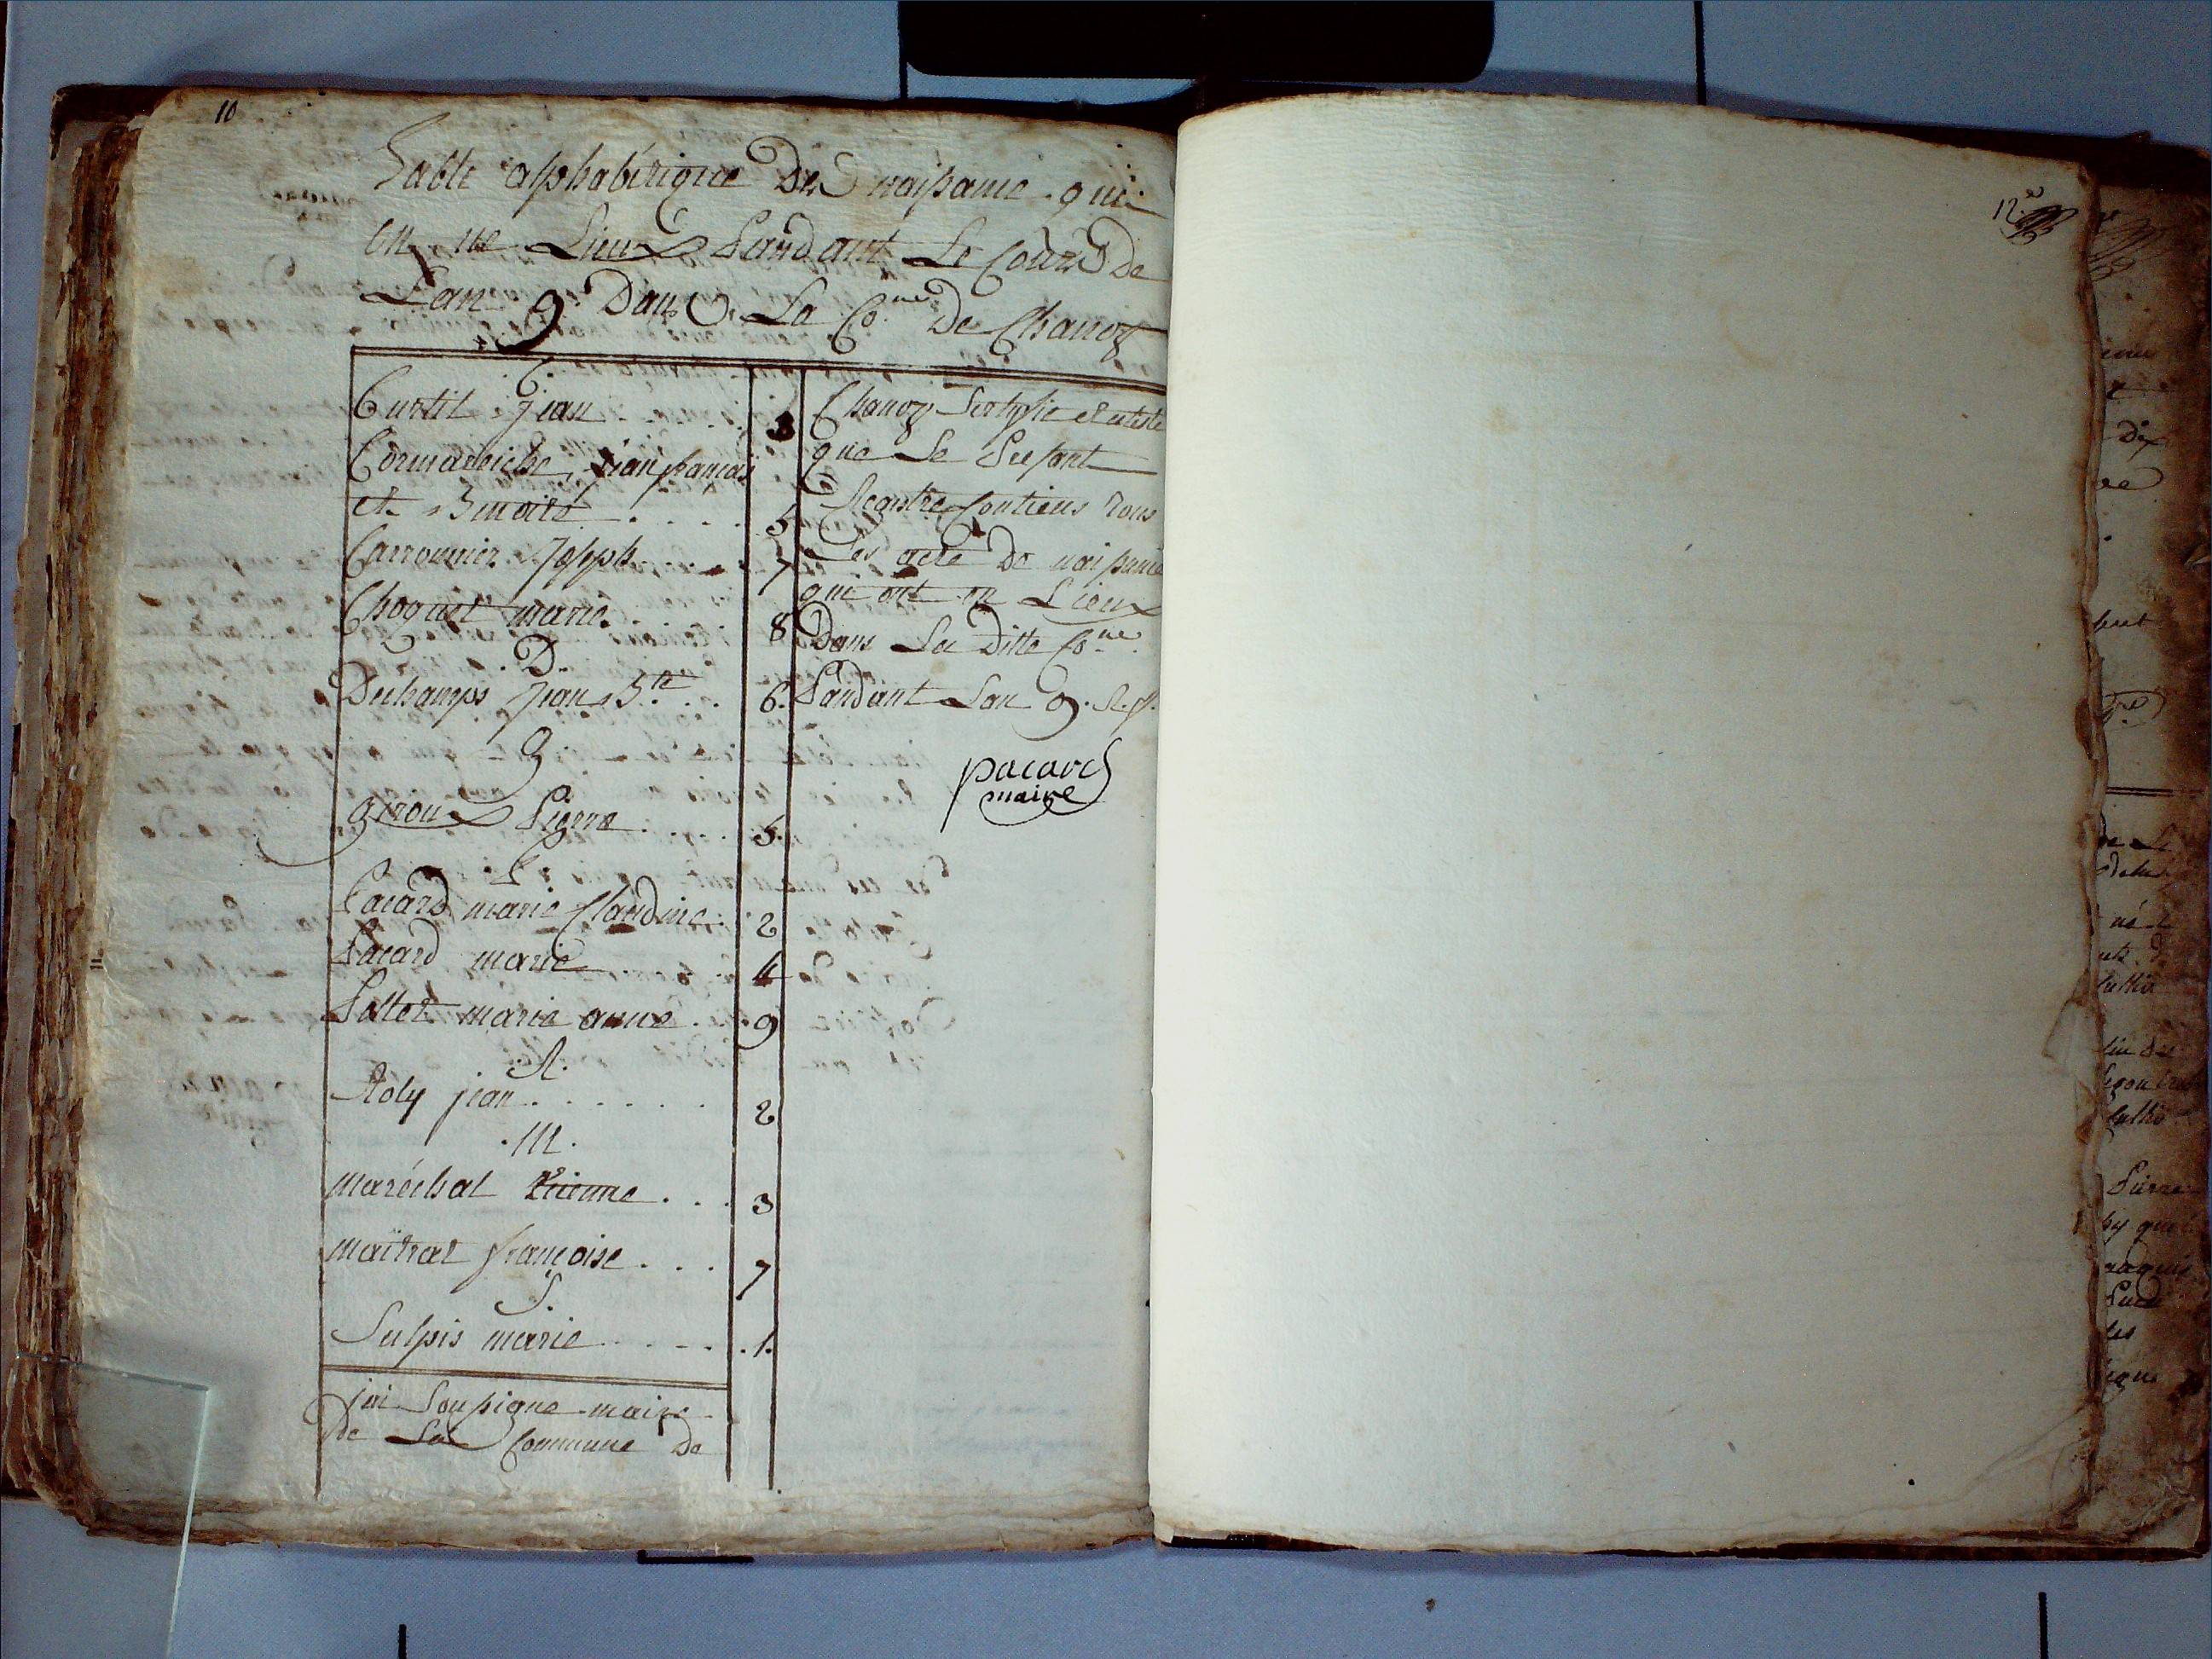 10
Table alphabétique Des naissance qui
on ue Lieux Pandant Le Cours De
L'an 9. Dans La Co.ne De Chanoz
C.
Curtil jean . . . . 3
Cormareiche, jean françois
et Benoite . . . . . 5
Carronnier Joseph . . . 7
Choquet marie . . . . 8
. D.
Dechamps Jean B.te . . 6.
G
giroux Pierre . . . . 5.
P.
Pacard marie Claudine . 2
Pacard marie . . . . 4
Pollet marie anne . . 9
. R.
Roly jean . . . . . . 2
. M.
Maréchal Etienne . . . 3
Maitrat françoise . . . 7
S.
Sulpis marie . . . . . 1.
jai Soussigne maire
de La Commune De
Chanoz Sertifie et ateste
que Le Presant
Registre Contiens tous
Les acte De naissance
qui ont on Lieux
Dans La Ditte Co.ne
Pandant Lan 9. R.f.
pacard
maire
12.e
dix
né
Pierre